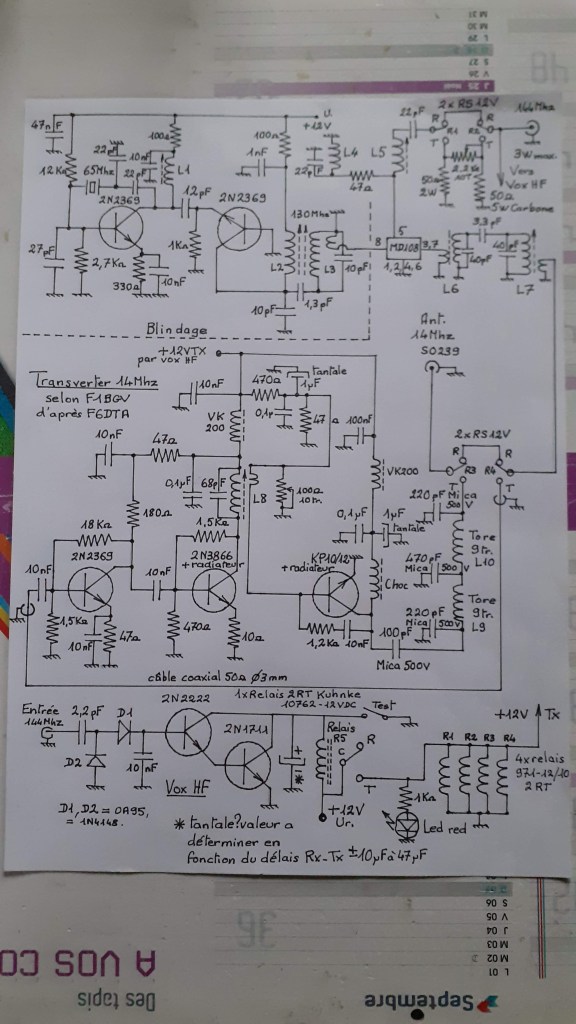 47nF
100Ω
22pF
10nF
L1
65Mhz
22pF
12KΩ
2N2369
12pF
2N2369
27pF
2,7KΩ
330Ω
10nF
1KΩ
100Ω
1nF
130Mhz
L2
L3
10pF
10pF
1,3pF
+12V
22pF
L4
47Ω
L5
22pF
2xRS12V
R
R1
R2
R
T
T
2,2KΩ
10T
50Ω
2W
50Ω
5W Carbone
144Mhz
3W max.
Vers
Vox HF
5
8
MD108
3,7
1,2,4,6
L6
40pF
3,3pF
40pF
L7
Blindage
+12VTX
par vox HF
Transverter 14Mhz
selon F1BGV
d'après F6DTA
10nF
470Ω
tantale
1µF
0,1µ
47Ω
VK
200
100nF
VK200
10nF
47Ω
0,1µF
68pF
L8
100Ω
180Ω
18KΩ
1,5KΩ
0,1µF
1µF
tantale
10nF
2N2369
10nF
2N3866
+radiateur
KP10/12
+radiateur
Choc
1,5KΩ
10nF
47Ω
470Ω
10Ω
1,2KΩ
10nF
100pF
Mica 500V
câble coaxial 50Ω Ø3mm
Ant.
14Mhz
SO239
2xRS12V
R
R3
R4
R
T
T
220pF Mica
500V
Tore
9tr.
L10
470pF
Mica 500V
Tore
9tr.
L9
220pF
Mica 500V
Entrée
144Mhz
2,2pF
D1
D2
10nF
2N2222
2N1711
Vox HF
D1, D2 = OA95,
= 1N4148.
1xRelais 2RT Kuhnke
10762-12VDC
Test
Relais
R5
C
R
T
+12V
Ur.
* tantale?valeur a
déterminer en
fonction du délais Rx-Tx ±10µF à 47µF
1KΩ
Led red
+12V
Tx
R1
R2
R3
R4
4xrelais
971-12/10
2RT
Septembre
Des tapis
A VOS CO
L 01
M 02
M 03
J 04
V 05
S 06
36